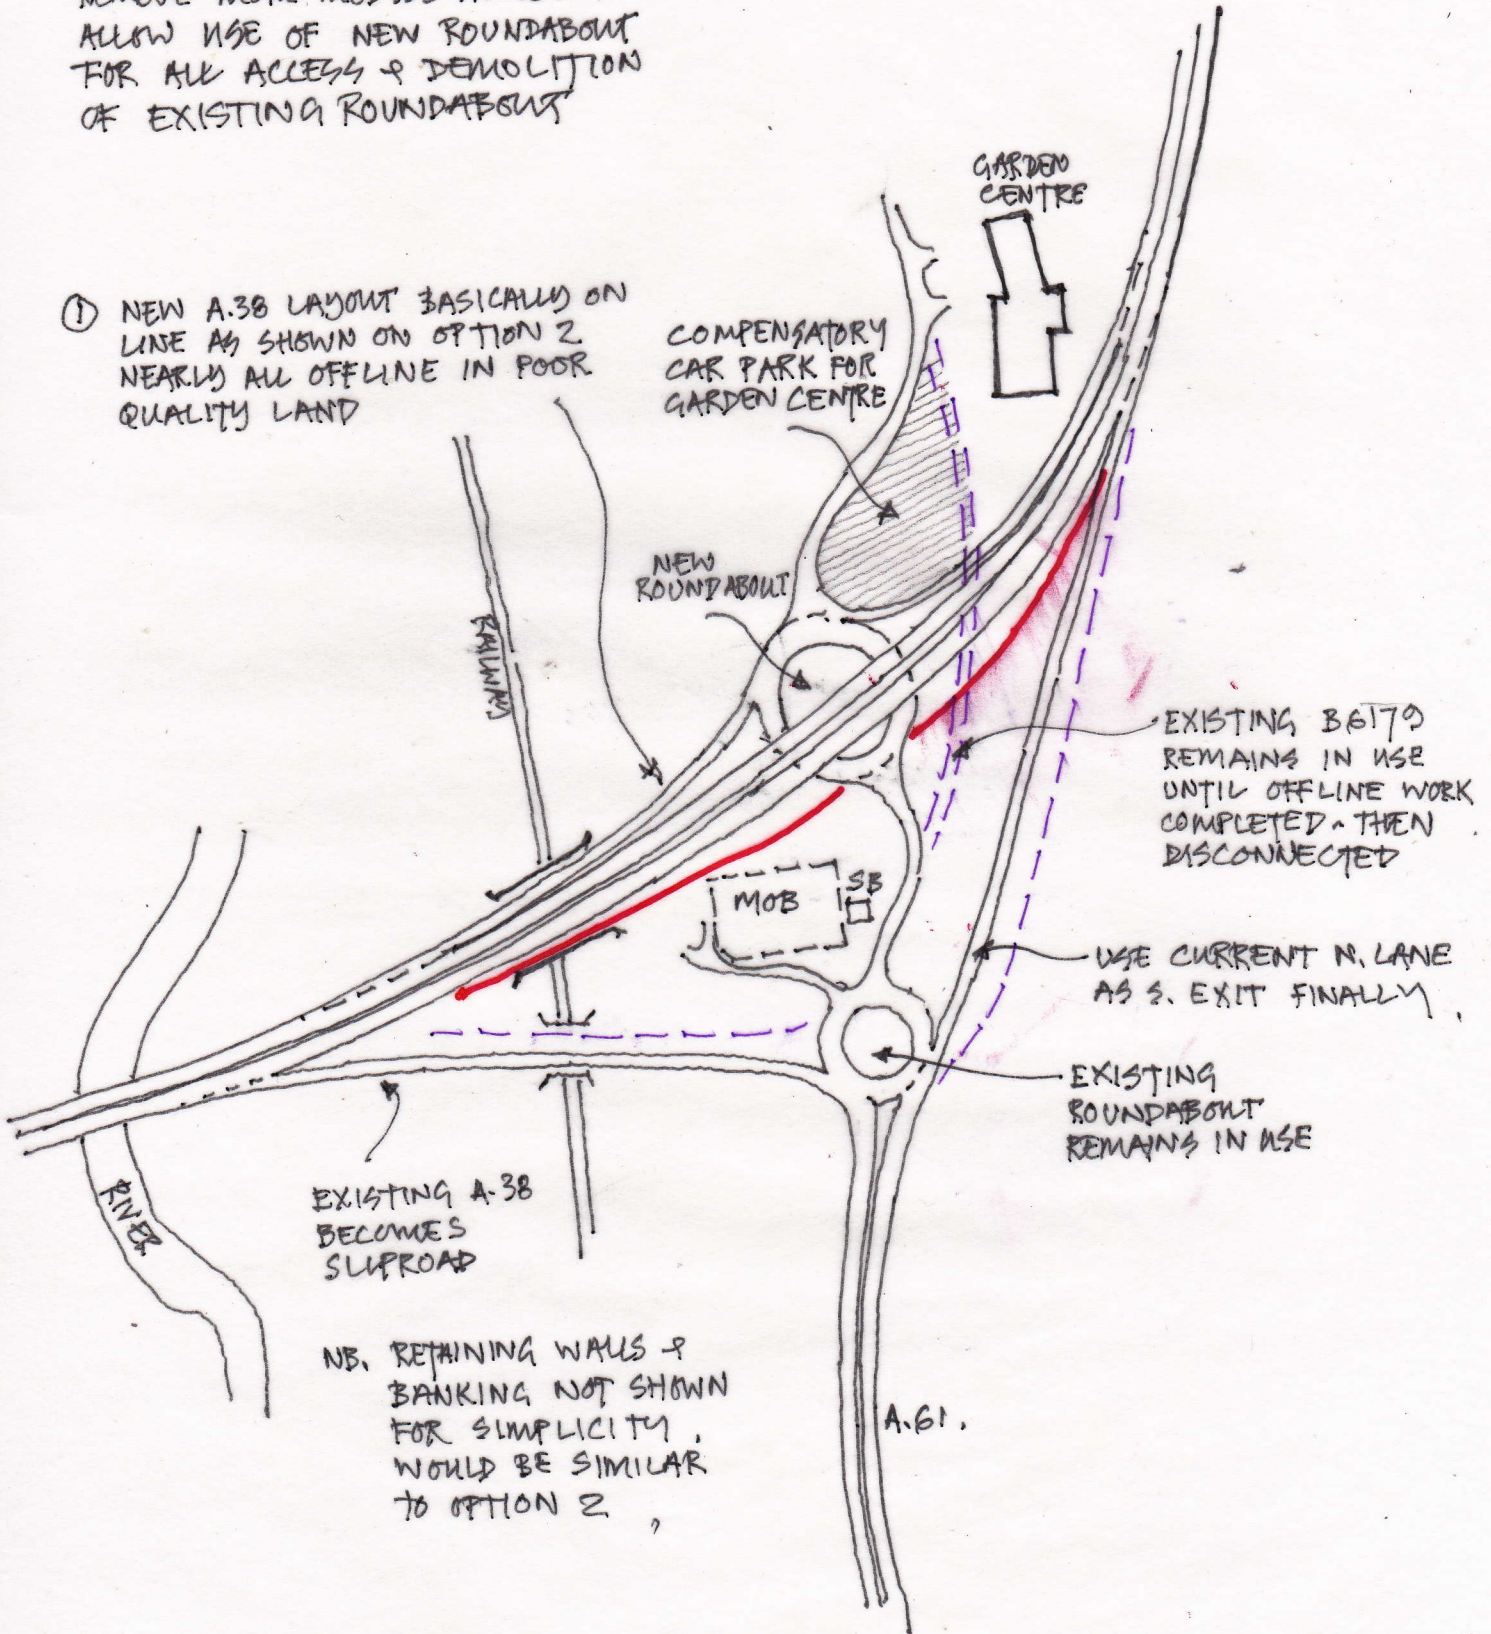 ALLOW USE OF NEW ROUNDABOUT
FOR ALL ACCESS & DEMOLITION
OF EXISTING ROUNDABOUT
GARDEN
CENTRE
① NEW A.38 LAYOUT BASICALLY ON
LINE AS SHOWN ON OPTION 2
NEARLY ALL OFFLINE IN POOR
QUALITY LAND
COMPENSATORY
CAR PARK FOR
GARDEN CENTRE
NEW
ROUNDABOUT
RAILWAY
EXISTING B6179
REMAINS IN USE
UNTIL OFFLINE WORK
COMPLETED - THEN
DISCONNECTED
MOB
SB
USE CURRENT N. LANE
AS S. EXIT FINALLY.
EXISTING
ROUNDABOUT
REMAINS IN USE
RIVER
EXISTING A-38
BECOMES
SLIPROAD
NB. RETAINING WALLS &
BANKING NOT SHOWN
FOR SIMPLICITY.
WOULD BE SIMILAR
TO OPTION 2,
A.61.